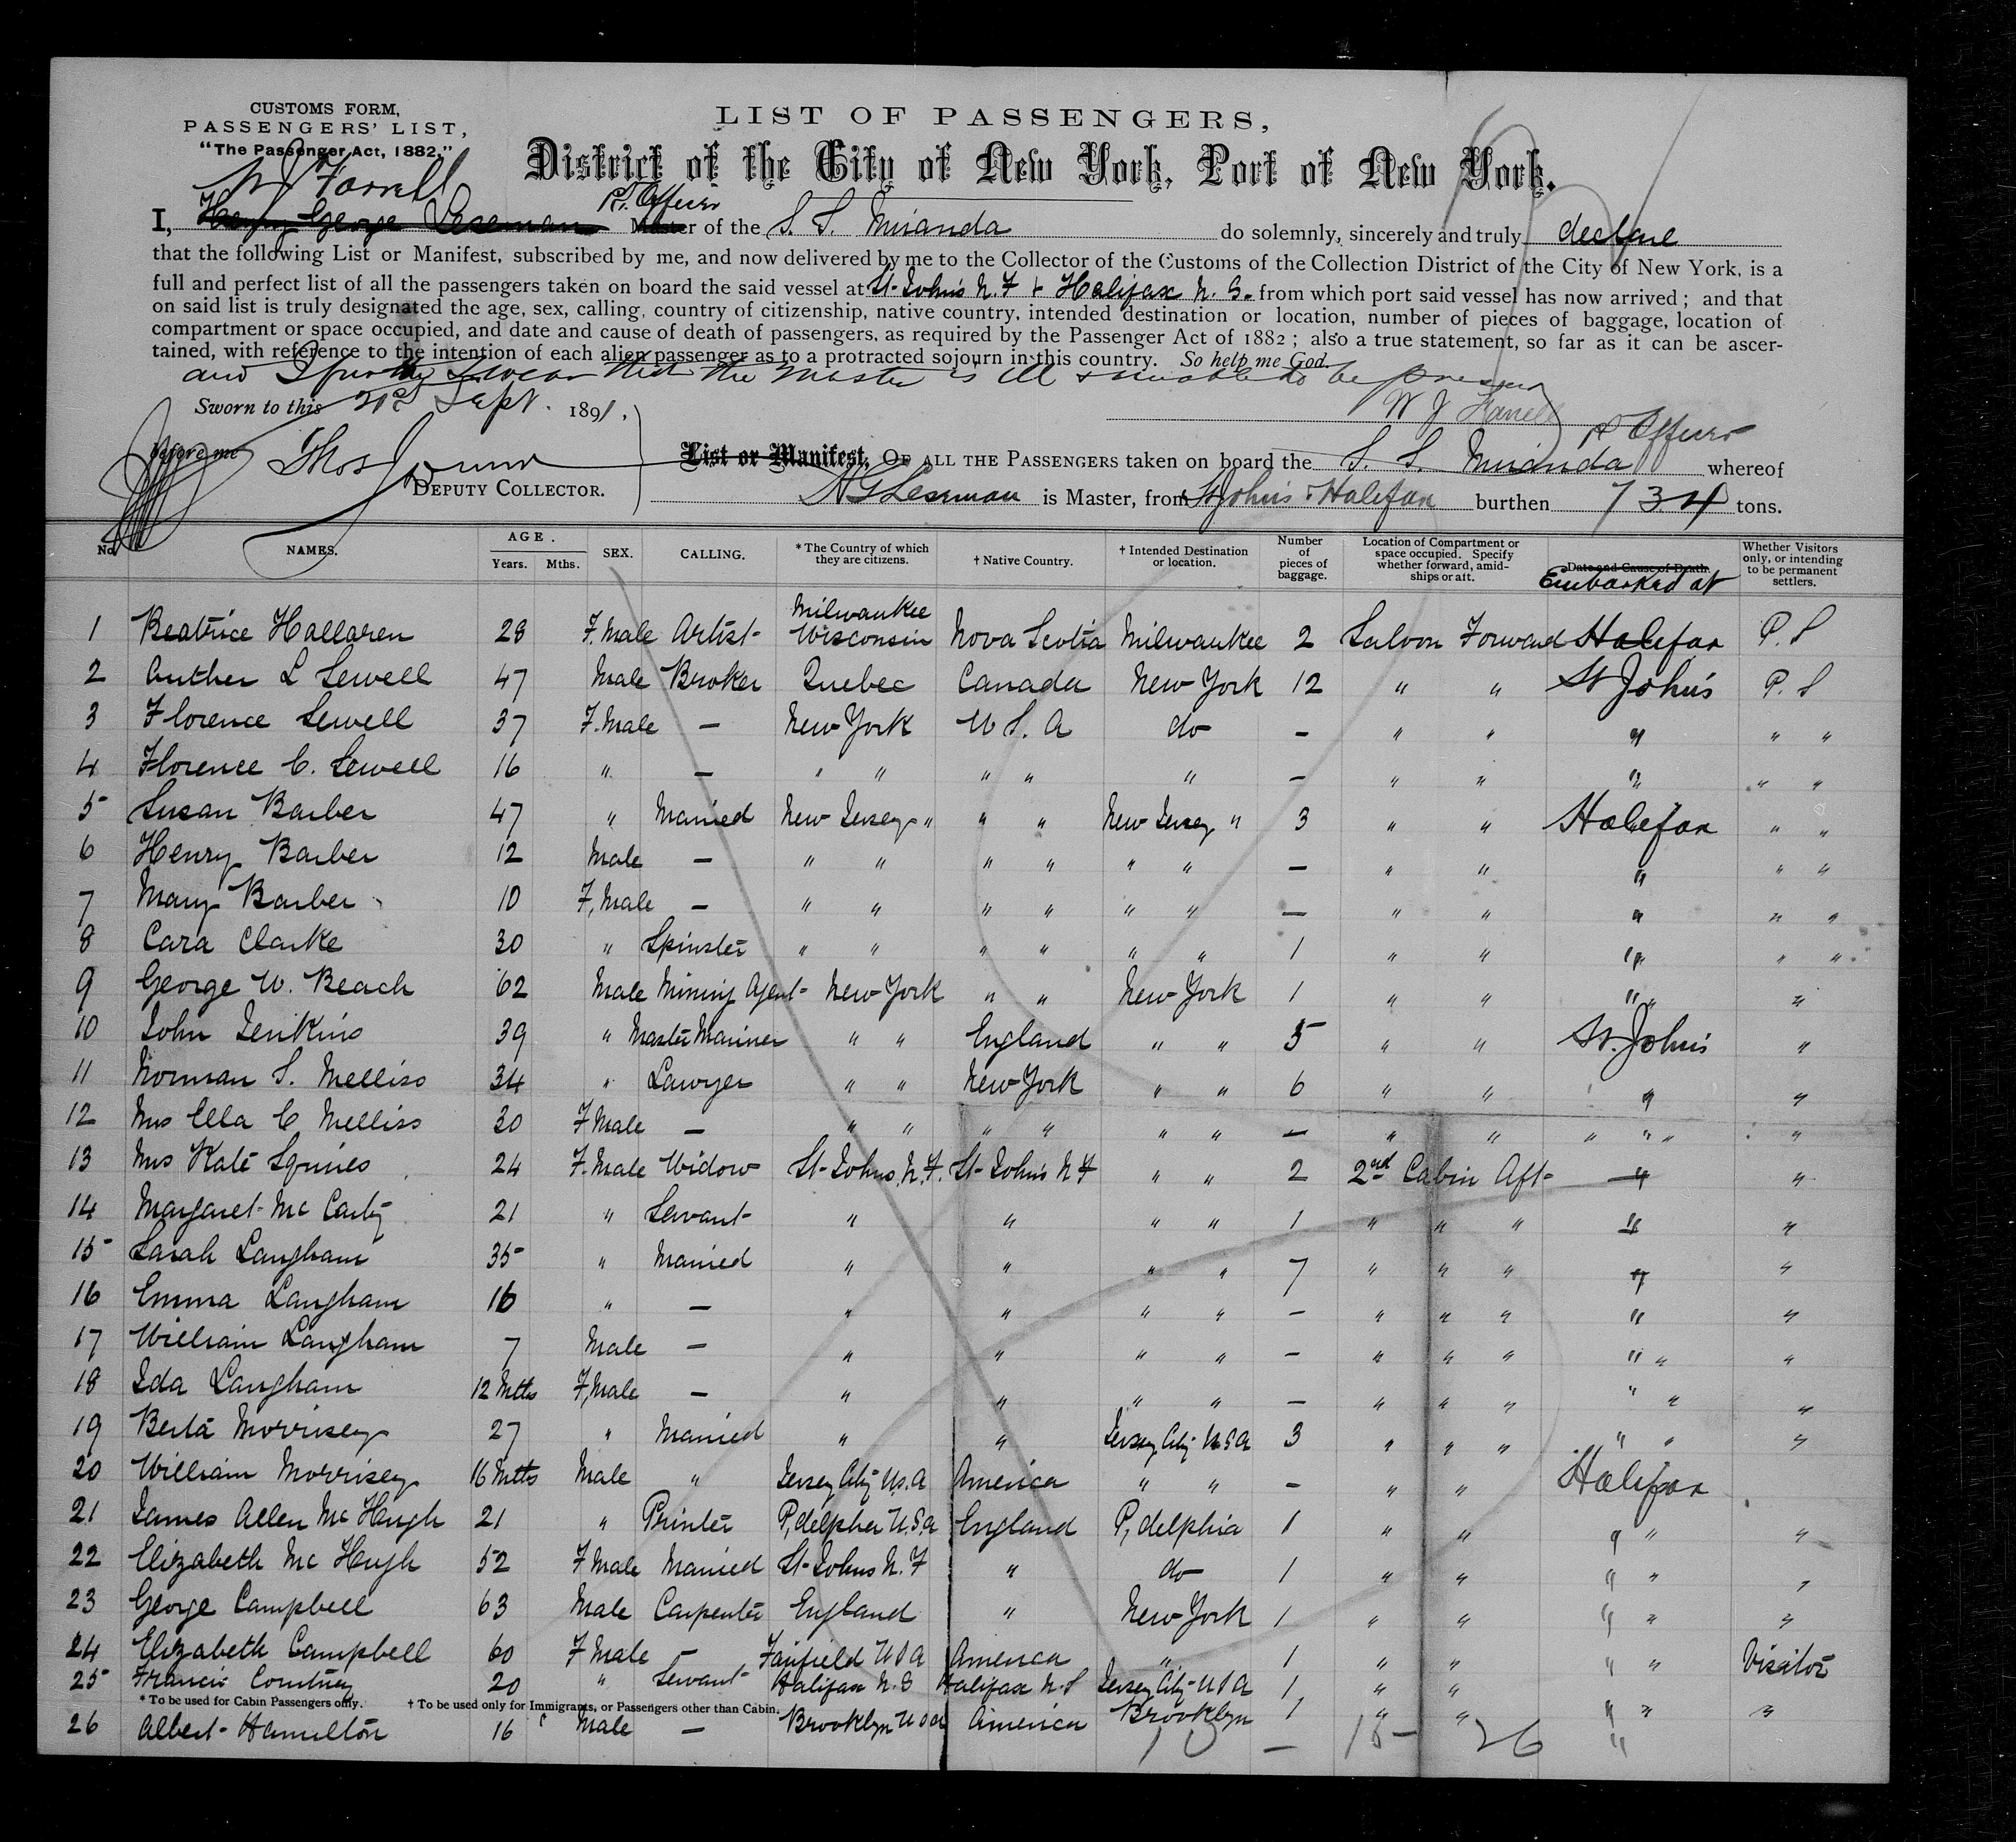 CUSTOMS FORM,
PASSENGERS' LIST,
"The Passenger Act, 1882."
LIST OF PASSENGERS,
District of the City of New York, Port of New York.
W J Farrell
Officer
I, Henry George Leseman Master of the S. S. Miranda do solemnly, sincerely and truly declare
that the following List or Manifest, subscribed by me, and now delivered by me to the Collector of the Customs of the Collection District of the City of New York, is a
full and perfect list of all the passengers taken on board the said vessel at St. Johns N. F + Halifax N. S. from which port said vessel has now arrived; and that
on said list is truly designated the age, sex, calling, country of citizenship, native country, intended destination or location, number of pieces of baggage, location of
compartment or space occupied, and date and cause of death of passengers, as required by the Passenger Act of 1882; also a true statement, so far as it can be ascer-
tained, with reference to the intention of each alien passenger as to a protracted sojourn in this country. So help me God.
and I further swear that the Master is ill & unable to be present
Sworn to this 21st Sept. 1891,
W J Farrell
Officer
before me Thos
DEPUTY COLLECTOR.
List or Manifest, OF ALL THE PASSENGERS taken on board the S. S. Miranda whereof
H G Leseman is Master, from St Johns & Halifax burthen 734 tons.
No. NAMES. AGE. Years. Mths. SEX. CALLING. * The Country of which they are citizens. † Native Country. † Intended Destination or location. Number of pieces of baggage. Location of Compartment or space occupied. Specify whether forward, amidships or aft. Date and Cause of Death. Embarked at Whether Visitors only, or intending to be permanent settlers.
1 Beatrice Hallaren 28 F. Male Artist Milwaukee Wisconsin Nova Scotia Milwaukee 2 Saloon Forward Halifax P. S
2 Arther L Sewell 47 Male Broker Quebec Canada New York 12 " " St Johns P. S
3 Florence Sewell 37 F. Male — New York U S. A do — " " " " "
4 Florence C. Sewell 16 " — " " " " " — " " " " "
5 Susan Barber 47 " Married New Jersey " " " New Jersey " 3 " " Halifax " "
6 Henry Barber 12 Male — " " " " " " — " " " " "
7 Mary Barber 10 F. Male — " " " " " " — " " " " "
8 Cara Clarke 30 " Spinster " " " " " " 1 " " " " "
9 George W. Beach 62 Male Mining Agent New York " " New York 1 " " " " "
10 John Jenkins 39 " Master Mariner " " England " " 5 " " St. Johns "
11 Norman S. Melliss 34 " Lawyer " " New York " " 6 " " " "
12 Mrs Ella C Melliss 30 F Male — " " " " " " — " " " " " "
13 Mrs Kate Squires 24 F. Male Widow St Johns, N. F. St Johns N F " " 2 2nd Cabin Aft " "
14 Margaret Mc Carty 21 " Servant " " " " 1 " " " " "
15 Sarah Langham 35 " Married " " " " 7 " " " " "
16 Emma Langham 16 " — " " " " — " " " " "
17 William Langham 7 Male — " " " " — " " " " " "
18 Ida Langham 12 Mths F. Male — " " " " — " " " " " "
19 Berta Morrisey 27 " Married " " Jersey City U S A 3 " " " " " "
20 William Morrisey 16 Mths Male " Jersey City U. S. A America " " — " " Halifax
21 James Allen Mc Hugh 21 " Printer P,delphia U. S. A England P,delphia 1 " " " " "
22 Elizabeth Mc Hugh 52 F Male Married St Johns N. F " do 1 " " " " "
23 George Campbell 63 Male Carpenter England " New York 1 " " " " "
24 Elizabeth Campbell 60 F Male — Fairfield U S A America " 1 " " " " Visitor
25 Francis Courtney 20 " Servant Halifax N. S Halifax N. S Jersey City U S A 1 " " " " "
* To be used for Cabin Passengers only. † To be used only for Immigrants, or Passengers other than Cabin.
26 Albert Hamilton 16 Male — Brooklyn U S A America Brooklyn — "
15 26